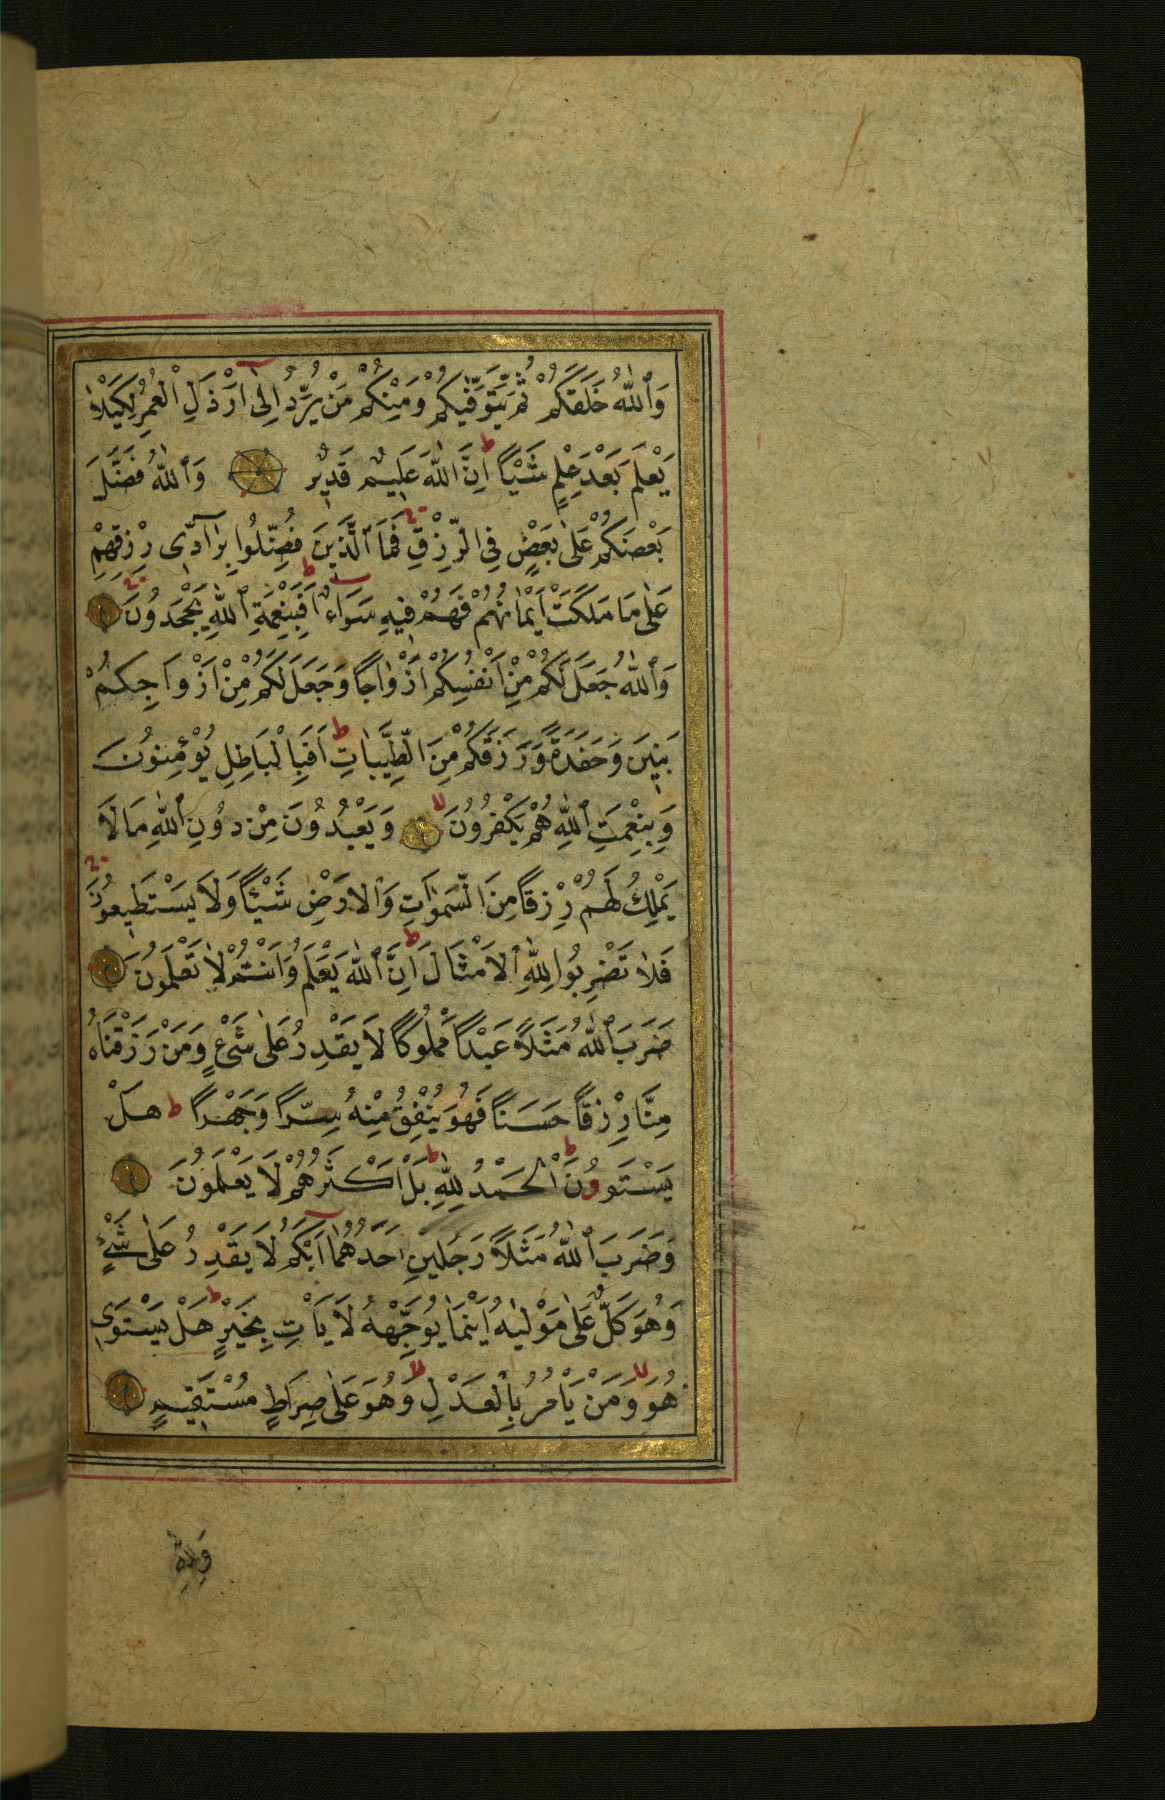 وَٱللّٰهُ خَلَقَكُمْ ثُمَّ يَتَوَفّٰيكُمْ وَمِنْكُمْ مَنْ يُرَدُّ اِلٰى اَرْذَلِ الْعُمُرِ لِكَيْلَا
يَعْلَمَ بَعْدَ عِلْمٍ شَيْـًٔا ط اِنَّ اللّٰهَ عَلِيمٌ قَدِيرٌ وَٱللّٰهُ فَضَّلَ
بَعْضَكُمْ عَلٰى بَعْضٍ فِى الرِّزْقِ فَمَا ٱلَّذِينَ فُضِّلُوا بِرَآدِّى رِزْقِهِمْ
عَلٰى مَا مَلَكَتْ اَيْمَانُهُمْ فَهُمْ فِيهِ سَوَآءٌ ط اَفَبِنِعْمَةِ ٱللّٰهِ يَجْحَدُونَ
وَٱللّٰهُ جَعَلَ لَكُمْ مِنْ اَنْفُسِكُمْ اَزْوَاجًا وَجَعَلَ لَكُمْ مِنْ اَزْوَاجِكُمْ
بَنِينَ وَحَفَدَةً وَرَزَقَكُمْ مِنَ الطَّيِّبَاتِ ط اَفَبِالْبَاطِلِ يُؤْمِنُونَ
وَبِنِعْمَتِ ٱللّٰهِ هُمْ يَكْفُرُونَ لا وَيَعْبُدُونَ مِنْ دُونِ ٱللّٰهِ مَا لَا
يَمْلِكُ لَهُمْ رِزْقًا مِنَ السَّمٰوَاتِ وَٱلْاَرْضِ شَيْـًٔا وَلَا يَسْتَطِيعُونَ
فَلَا تَضْرِبُوا لِلّٰهِ ٱلْاَمْثَالَ ط اِنَّ ٱللّٰهَ يَعْلَمُ وَاَنْتُمْ لَا تَعْلَمُونَ
ضَرَبَ ٱللّٰهُ مَثَلًا عَبْدًا مَمْلُوكًا لَا يَقْدِرُ عَلٰى شَىْءٍ وَمَنْ رَزَقْنَاهُ
مِنَّا رِزْقًا حَسَنًا فَهُوَ يُنْفِقُ مِنْهُ سِرًّا وَجَهْرًا ط هَلْ
يَسْتَوُونَ ط اَلْحَمْدُ لِلّٰهِ ط بَلْ اَكْثَرُهُمْ لَا يَعْلَمُونَ
وَضَرَبَ ٱللّٰهُ مَثَلًا رَجُلَيْنِ اَحَدُهُمَا اَبْكَمُ لَا يَقْدِرُ عَلٰى شَىْءٍ
وَهُوَ كَلٌّ عَلٰى مَوْلٰيهُ اَيْنَمَا يُوَجِّهْهُ لَا يَاْتِ بِخَيْرٍ ط هَلْ يَسْتَوِى
هُوَ لا وَمَنْ يَاْمُرُ بِالْعَدْلِ لا وَهُوَ عَلٰى صِرَاطٍ مُسْتَقِيمٍ
وَلِلّٰهِ